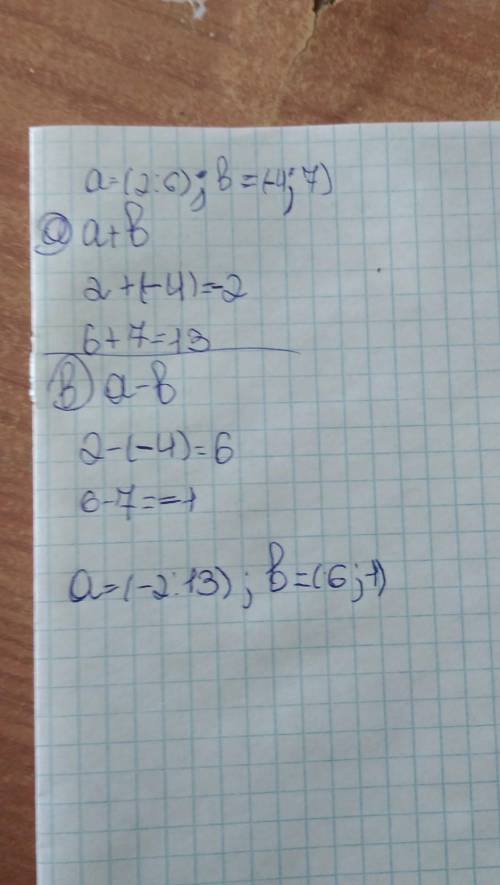 a=(2:6); b=(-4;7)
a) a+b
2+(-4)=-2
6+7=13
b) a-b
2-(-4)=6
6-7=-1
a=(-2:13); b=(6;-1)